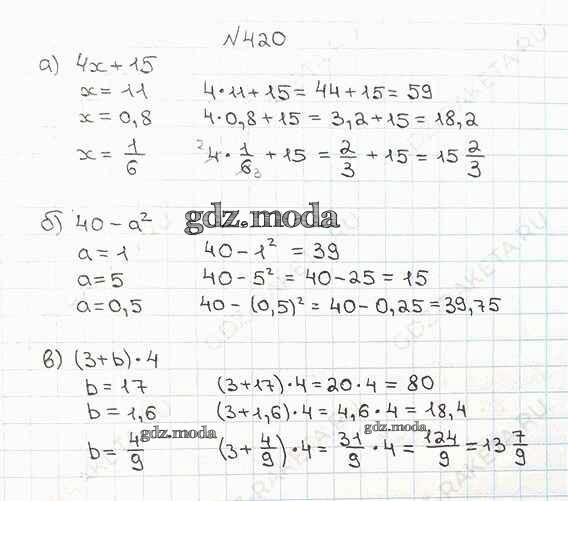 №420
а) 4x + 15
x = 11 4·11 + 15 = 44 + 15 = 59
x = 0,8 4·0,8 + 15 = 3,2 + 15 = 18,2
x = 1/6 ²4·1/6₃ + 15 = 2/3 + 15 = 15 2/3
б) 40 - a²
gdz.moda
a = 1 40 - 1² = 39
a = 5 40 - 5² = 40 - 25 = 15
a = 0,5 40 - (0,5)² = 40 - 0,25 = 39,75
в) (3 + b)·4
b = 17 (3 + 17)·4 = 20·4 = 80
b = 1,6 (3 + 1,6)·4 = 4,6·4 = 18,4
gdz.moda gdz.moda
b = 4/9 (3 + 4/9)·4 = 31/9·4 = 124/9 = 13 7/9